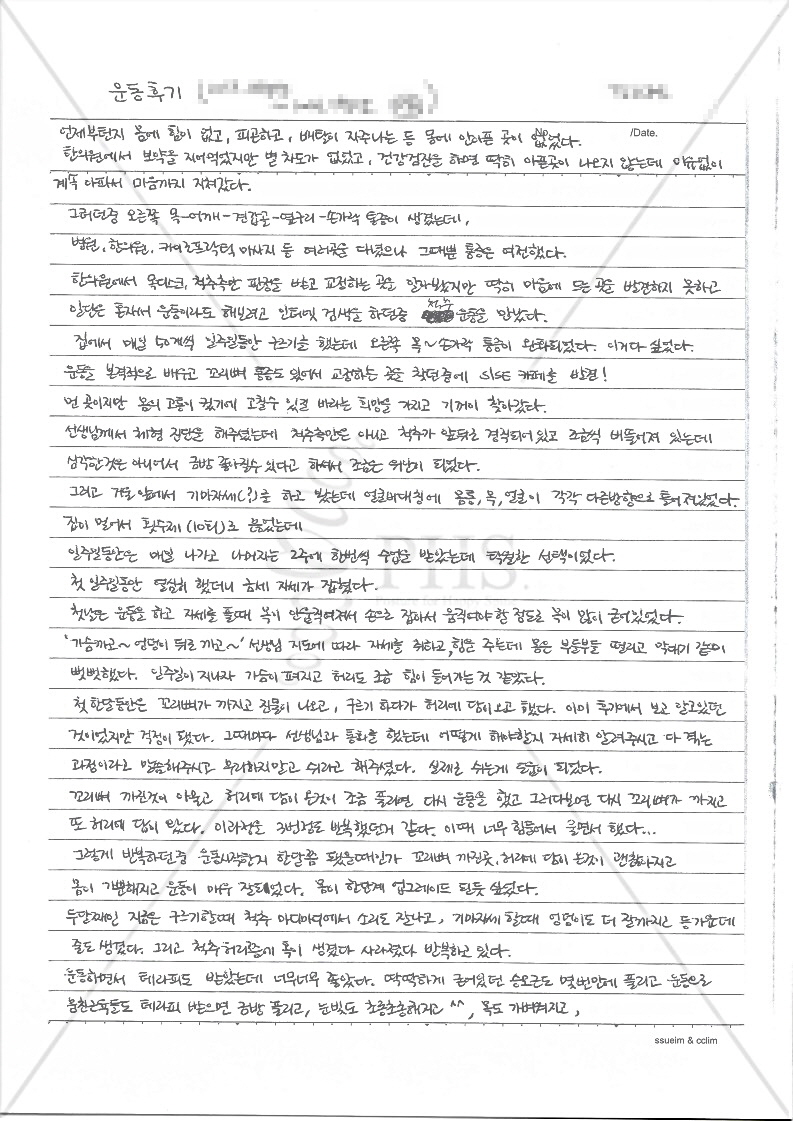 운동후기 (
/Date.
언제부턴지 몸에 힘이 없고, 피곤하고, 배탈이 자주나는 등 몸에 안아픈 곳이 없었다.
한의원에서 보약을 지어먹었지만 별 차도가 없었고, 건강검진을 하면 딱히 아픈곳이 나오지 않는데 이유없이
계속 아파서 마음까지 지쳐갔다.
그러던중 오른쪽 목-어깨-견갑골-옆구리-손가락 통증이 생겼는데,
병원, 한의원, 카이로프락틱 마사지 등 여러곳을 다녔으나 그때뿐 통증은 여전했다.
한의원에서 목디스크, 척추측만 판정을 받고 교정하는 곳을 알아봤지만 딱히 마음에 드는 곳을 발견하지 못하고
일단은 혼자서 운동이라도 해보려고 인터넷 검색을 하던중 척추운동을 만났다.
집에서 매일 50개씩 일주일동안 구르기를 했는데 오른쪽 목~손가락 통증이 완화되었다. 이거다 싶었다.
운동을 본격적으로 배우고 꼬리뼈 통증도 있어서 교정하는 곳을 찾던중에 SNPE 카페를 발견!
먼 곳이지만 몸의 고통이 컸기에 고칠수 있길 바라는 희망을 가지고 기꺼이 찾아갔다.
선생님께서 체형 진단을 해주셨는데 척추측만은 아니고 척추가 앞뒤로 경직되어있고 조금씩 비틀어져 있는데
심각한것은 아니어서 금방 좋아질수 있다고 하셔서 조금은 위안이 되었다.
그리고 거울앞에서 기마자세(?)를 하고 봤는데 얼굴비대칭에 몸통, 목, 얼굴이 각각 다른방향으로 틀어져있었다.
집이 멀어서 횟수제(10회)로 끊었는데
일주일동안은 매일 나가고 나머지는 2주에 한번씩 수업을 받았는데 탁월한 선택이었다.
첫 일주일동안 열심히 했더니 금세 자세가 잡혔다.
첫날은 운동을 하고 자세를 풀때 목이 안움직여져서 손으로 잡아서 움직여야 할 정도로 목이 많이 굳어있었다.
'가슴까고~ 엉덩이 뒤로 까고~' 선생님 지도에 따라 자세를 취하고, 힘을 주는데 몸은 부들부들 떨리고 막대기 같이
뻣뻣했다. 일주일이 지나자 가슴이 펴지고 허리도 조금 힘이 들어가는 것 같았다.
첫 한달동안은 꼬리뼈가 까지고 진물이 나오고, 구르기 하다가 허리에 담이 오고 했다. 이미 후기에서 보고 알고있던
것이었지만 걱정이 됐다. 그때마다 선생님과 통화를 했는데 어떻게 해야할지 자세히 알려주시고 다 겪는
과정이라고 말씀해주시고 무리하지말고 쉬라고 해주셨다. 실제로 쉬는게 도움이 되었다.
꼬리뼈 까진것이 아물고 허리에 담이 온것이 조금 풀리면 다시 운동을 했고 그러다보면 다시 꼬리뼈가 까지고
또 허리에 담이 왔다. 이과정을 3번정도 반복했던거 같다. 이때 너무 힘들어서 울면서 했다...
그렇게 반복하던중 운동시작한지 한달쯤 됐을때인가 꼬리뼈 까진곳, 허리에 담이 온것이 괜찮아지고
몸이 가뿐해지고 운동이 매우 잘되었다. 몸이 한단계 업그레이드 된듯 싶었다.
두달째인 지금은 구르기할때 척추 마디마디에서 소리도 잘나고, 기마자세 할때 엉덩이도 더 잘까지고 등가운데
줄도 생겼다. 그리고 척추허리중에 혹이 생겼다 사라졌다 반복하고 있다.
운동하면서 테라피도 받았는데 너무너무 좋았다. 딱딱하게 굳어있던 승모근도 몇번만에 풀리고 운동으로
뭉친근육들도 테라피 받으면 금방 풀리고, 눈빛도 초롱초롱해지고 ^^, 목도 가벼워지고,
ssueim & cclim
PHS.